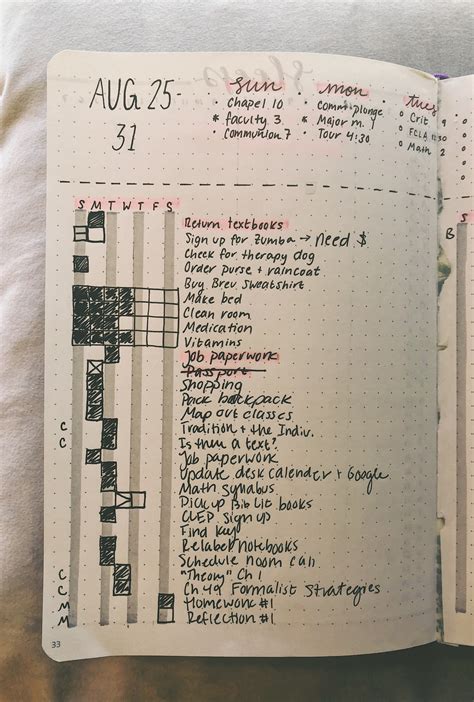 AUG 25-
31
sun
• Chapel 10
* faculty 3
• Communion 7
mon
• comm plunge
* Major m. 4
• Tour 4:30
tues
• Crit 9
• FCLA
• Math 2
S M T W T F S
Return textbooks
Sign up for Zumba → need $
Check for therapy dog
Order purse + raincoat
Buy Brev Sweatshirt
Make bed
Clean room
Medication
Vitamins
Job paperwork
Passport
Shopping
Pack backpack
Map out classes
C Tradition + the Indiv.
C Is there a text?
Job paperwork
Update desk calender + Google
Math Syllabus
Pick up Bib Lit books
CLEP Sign up
Find key
Relabel notebooks
Schedule room call
C "Theory" Ch 1
C Ch 49 Formalist Strategies
M Homework #1
M Reflection #1
33
B